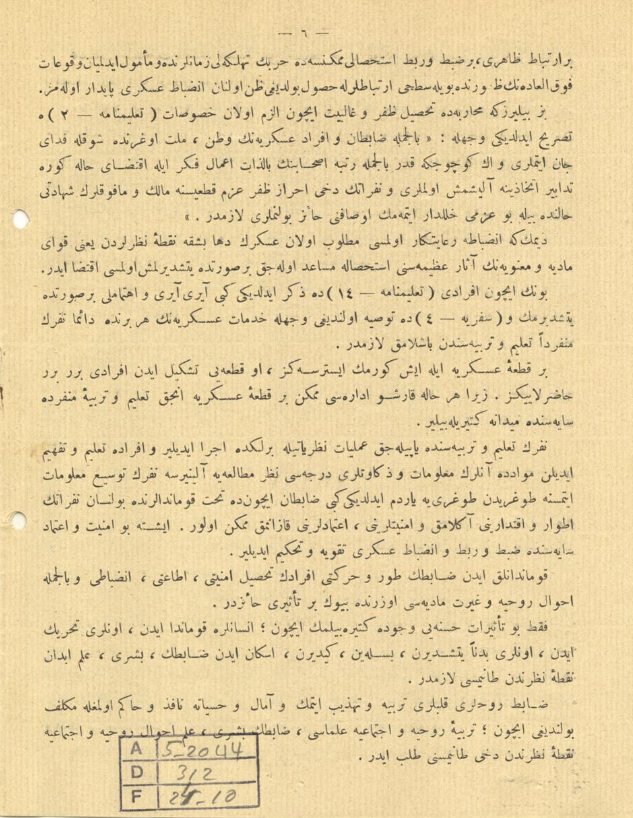 — ٦ —
بر ارتباط ظاهری، بر ضبط وربط استحصالی ممکنسه‌ده حربك تهلكه‌لی زمانلرنده و مأمول ایدلمیان وقوعات
فوق العاده‌نك ظهورنده بویله سطحی ارتباطلر له حصول بولدیغی ظن اولنان انضباط عسکری پایدار اوله‌مز.
بز بیلیرزکه محاربه‌ده تحصیل ظفر و غالبیت ایچون الزم اولان خصوصات ( تعلیمنامه — ٢ )ه
تصریح ایدلدیکی وجهله : « بالجمله ضابطان و افراد عسکریه‌نك وطن ، ملت اوغرنده شوقله فدای
جان ایتملری و اك کوچوجکه قدر بالجمله رتبه اصحابنك بالذات اعمال فکر ایله اقتضای حاله کوره
تدابیر اتخاذینه آلیشمش اولملری و نفراتك دخی احراز ظفر عزم قطعیسنه مالك و مافوقلرك شهادتی
حالنده بیله بو عزمی خللدار ایتمه‌مك اوصافنی حائز بولنملری لازمدر . »
دیمك‌که انضباطه رعایتکار اولمسی مطلوب اولان عسکرك دها بشقه نقطهٔ نظرلردن یعنی قوای
مادیه و معنویه‌نك آثار عظیمه‌سنی استحصاله مساعد اوله‌جق بر صورتده یتشدیرلمش اولمسی اقتضا ایدر.
بونك ایچون افرادی ( تعلیمنامه — ١٤ )ده ذکر ایدلدیکی کبی آیری آیری و اهتماملی بر صورتده
یتشدیرمك و ( سفریه — ٤ )ده توصیه اولندیغی وجهله خدمات عسکریه‌نك هر برنده دائما نفرك
منفرداً تعلیم و تربیه‌سندن باشلامق لازمدر .
بر قطعهٔ عسکریه ایله ایش کورمك ایسترسه‌کز ، او قطعه‌یی تشکیل ایدن افرادی برر برر
حاضرلاییکز . زیرا هر حاله قارشو اداره‌سی ممکن بر قطعهٔ عسکریه انجق تعلیم و تربیهٔ منفرده
سایه‌سنده میدانه کتیریله‌بیلیر .
نفرك تعلیم و تربیه‌سنده یاپیله‌جق عملیات نظریاتیله برلکده اجرا ایدیلیر و افراده تعلیم و تفهیم
ایدیلن موادده آنلرك معلومات و ذکاوتلری درجه‌سی نظر مطالعه‌یه آلینیرسه نفرك توسیع معلومات
ایتمسنه طوغریدن طوغری‌یه یاردم ایدلدیکی کبی ضابطان ایچون‌ده تحت قوماندالرنده بولنسان نفراتك
اطوار و اقتدارینی آکلامق و امنیتلرینی ، اعتمادلرینی قازانمق ممکن اولور . ایشته بو امنیت و اعتماد
سایه‌سنده ضبط و ربط و انضباط عسکری تقویه و تحکیم ایدیلیر .
قوماندانلق ایدن ضابطك طور و حرکتی افرادك تحصیل امنیتی ، اطاعتی ، انضباطی و بالجمله
احوال روحیه و غیرت مادیه‌سی اوزرنده بیوك بر تأثیری حائزدر .
فقط بو تأثیرات حسنه‌یی وجوده کتیره‌بیلمك ایچون ؛ انسانلره قوماندا ایدن ، اونلری تحریك
ایدن ، اونلری بدناً یتشدیرن ، بسله‌ین ، کیدیرن ، اسکان ایدن ضابطك ، بشری ، علم ابدان
نقطهٔ نظرندن طانیمسی لازمدر .
ضابط روحلری قلبلری تربیه و تهذیب ایتمك و آمال و حسیاته نافذ و حاکم اولمغله مکلف
بولندیغی ایچون ؛ تربیهٔ روحیه و اجتماعیه علماسی ، ضابطك بشری ، علم احوال روحیه و اجتماعیه
نقطهٔ نظرندن دخی طانیمسنی طلب ایدر .
A 5-2044
D 312
F 24-10